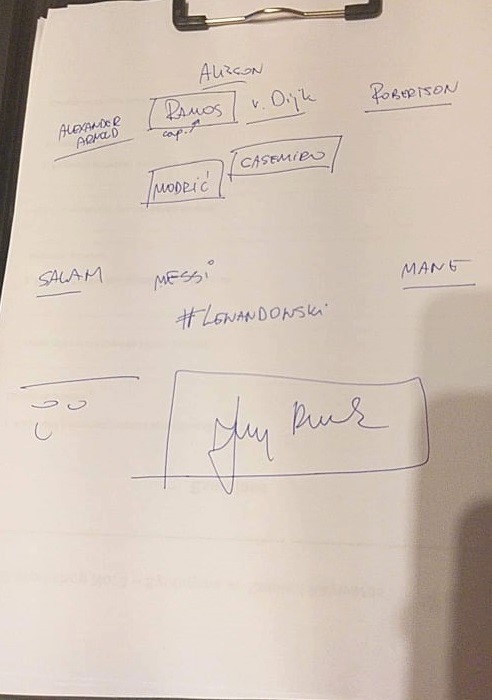 ALISSON
ALEXANDER ARNOLD
RAMOS
cap.
v. Dijk
ROBERTSON
MODRIĆ
CASEMIRO
SALAH
MESSI
MANE
#LEWANDOWSKI